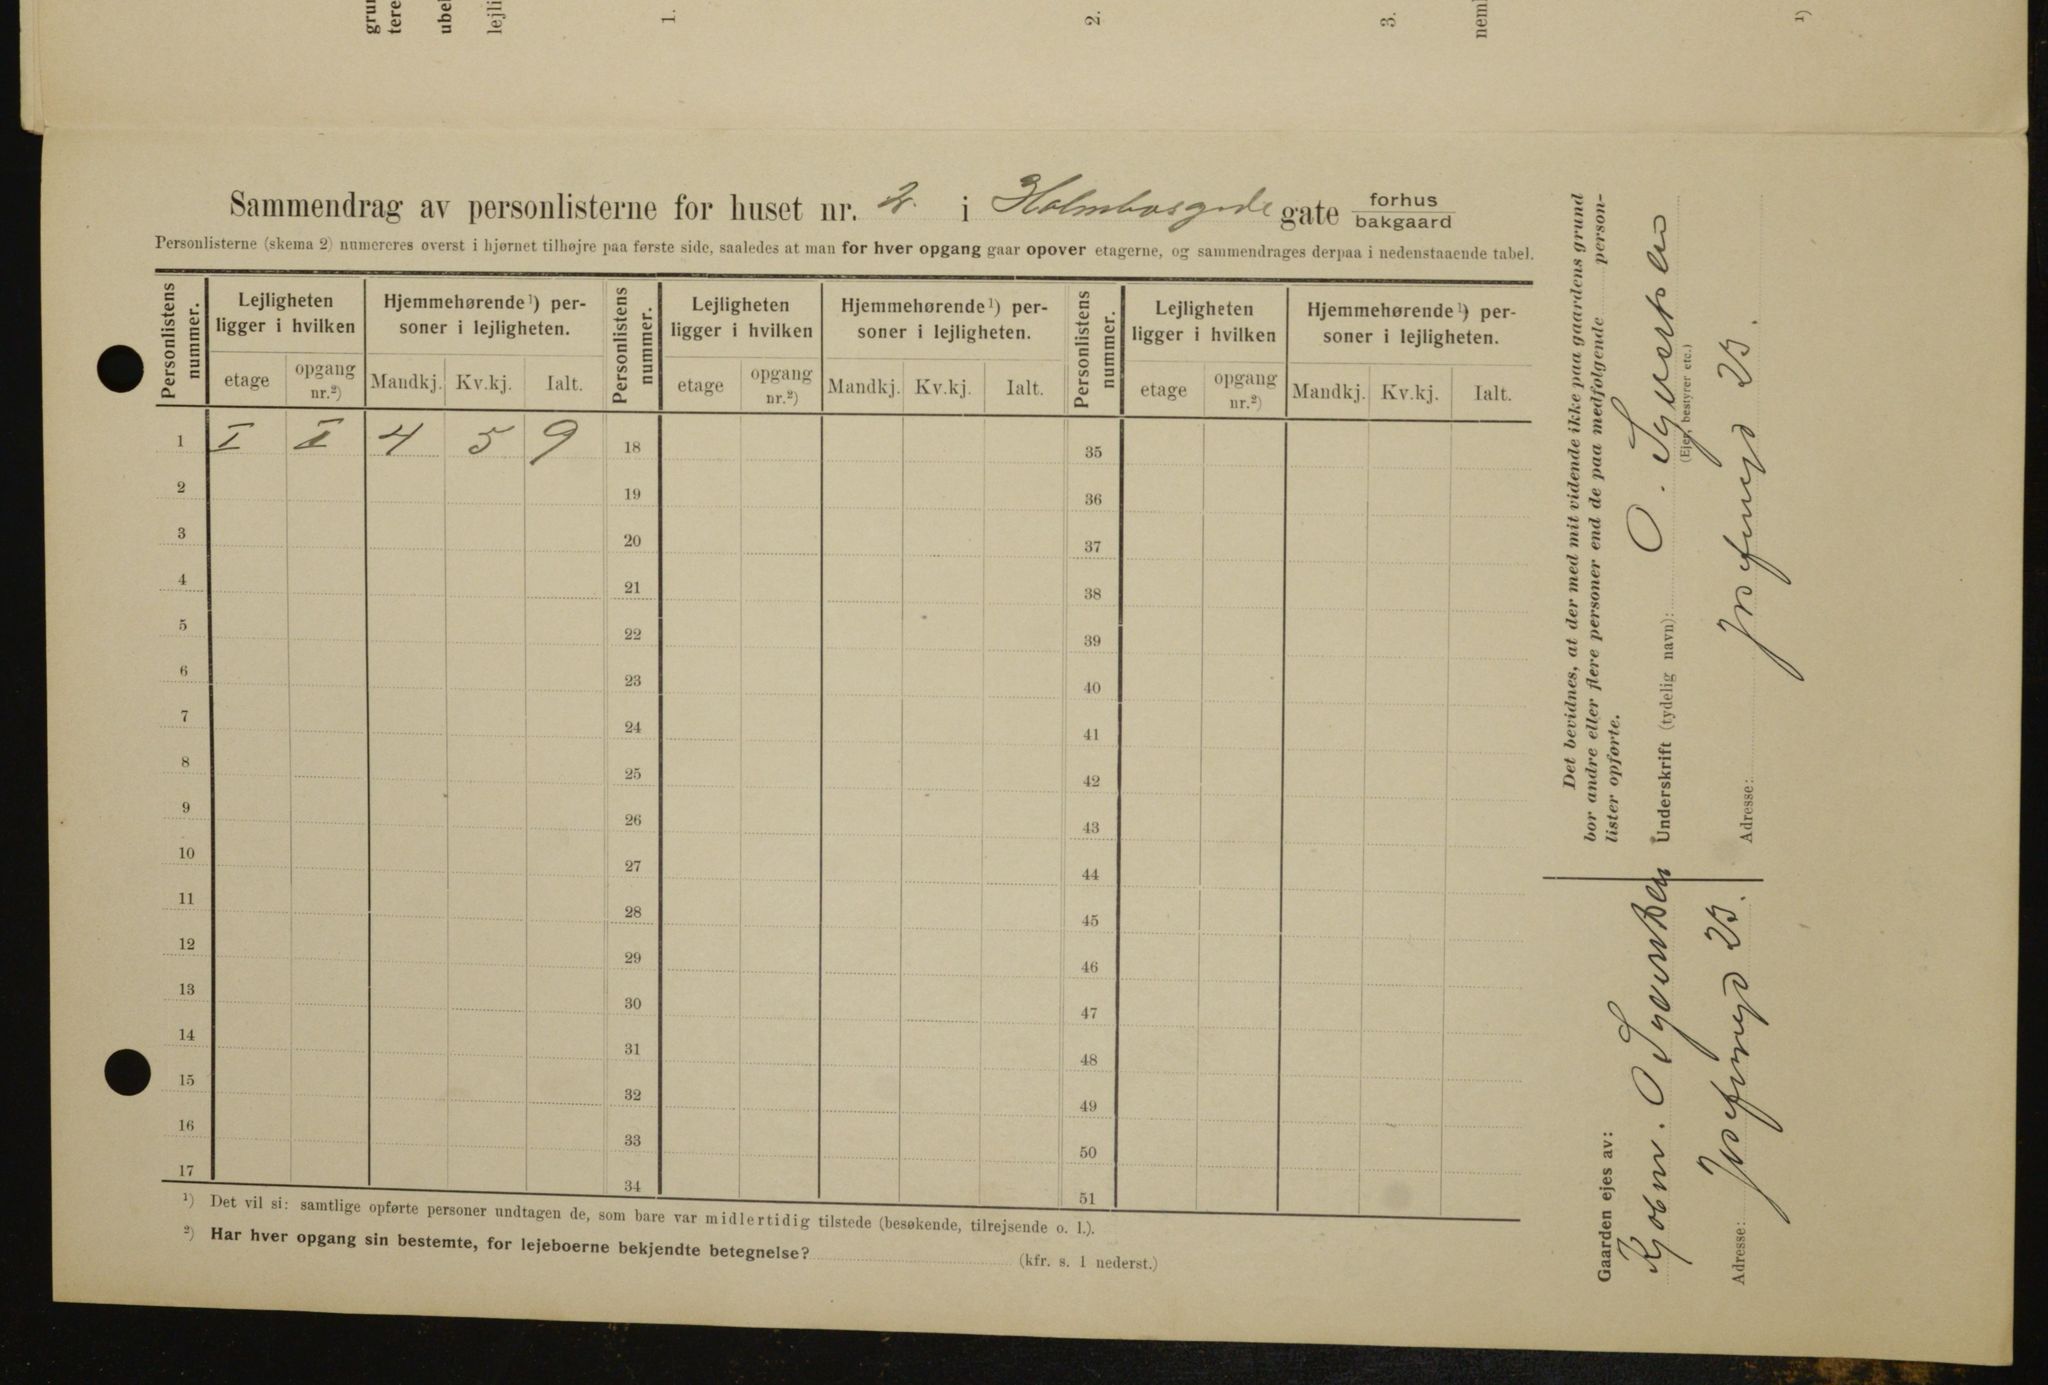 grun
tere
ube
lejli
1.
2.
3.
nem
1)
Sammendrag av personlisterne for huset nr. 2. i Holmbosgade gate forhus
bakgaard
Personlisterne (skema 2) numereres øverst i hjørnet tilhøjre paa første side, saaledes at man for hver opgang gaar opover etagerne, og sammendrages derpaa i nedenstaaende tabel.
Personlistens nummer. Lejligheten ligger i hvilken Hjemmehørende¹) personer i lejligheten. Personlistens nummer. Lejligheten ligger i hvilken Hjemmehørende¹) personer i lejligheten. Personlistens nummer. Lejligheten ligger i hvilken Hjemmehørende¹) personer i lejligheten.
etage opgang nr.²) Mandkj. Kv.kj. Ialt. etage opgang nr.²) Mandkj. Kv.kj. Ialt. etage opgang nr.²) Mandkj. Kv.kj. Ialt.
1 I I 4 5 9 18 35
2 19 36
3 20 37
4 21 38
5 22 39
6 23 40
7 24 41
8 25 42
9 26 43
10 27 44
11 28 45
12 29 46
13 30 47
14 31 48
15 32 49
16 33 50
17 34 51
¹) Det vil si: samtlige opførte personer undtagen de, som bare var midlertidig tilstede (besøkende, tilrejsende o. l.).
²) Har hver opgang sin bestemte, for lejeboerne bekjendte betegnelse? (kfr. s. 1 nederst.)
Det bevidnes, at der med mit vidende ikke paa gaardens grund
bor andre eller flere personer end de paa medfølgende person-
lister opførte.
Underskrift (tydelig navn): O. Syvertsen
(Ejer, bestyrer etc.)
Adresse: Josefinegd 23.
Gaarden ejes av:
Kjøbm. O Syvertsen
Adresse: Josefinegd 23.